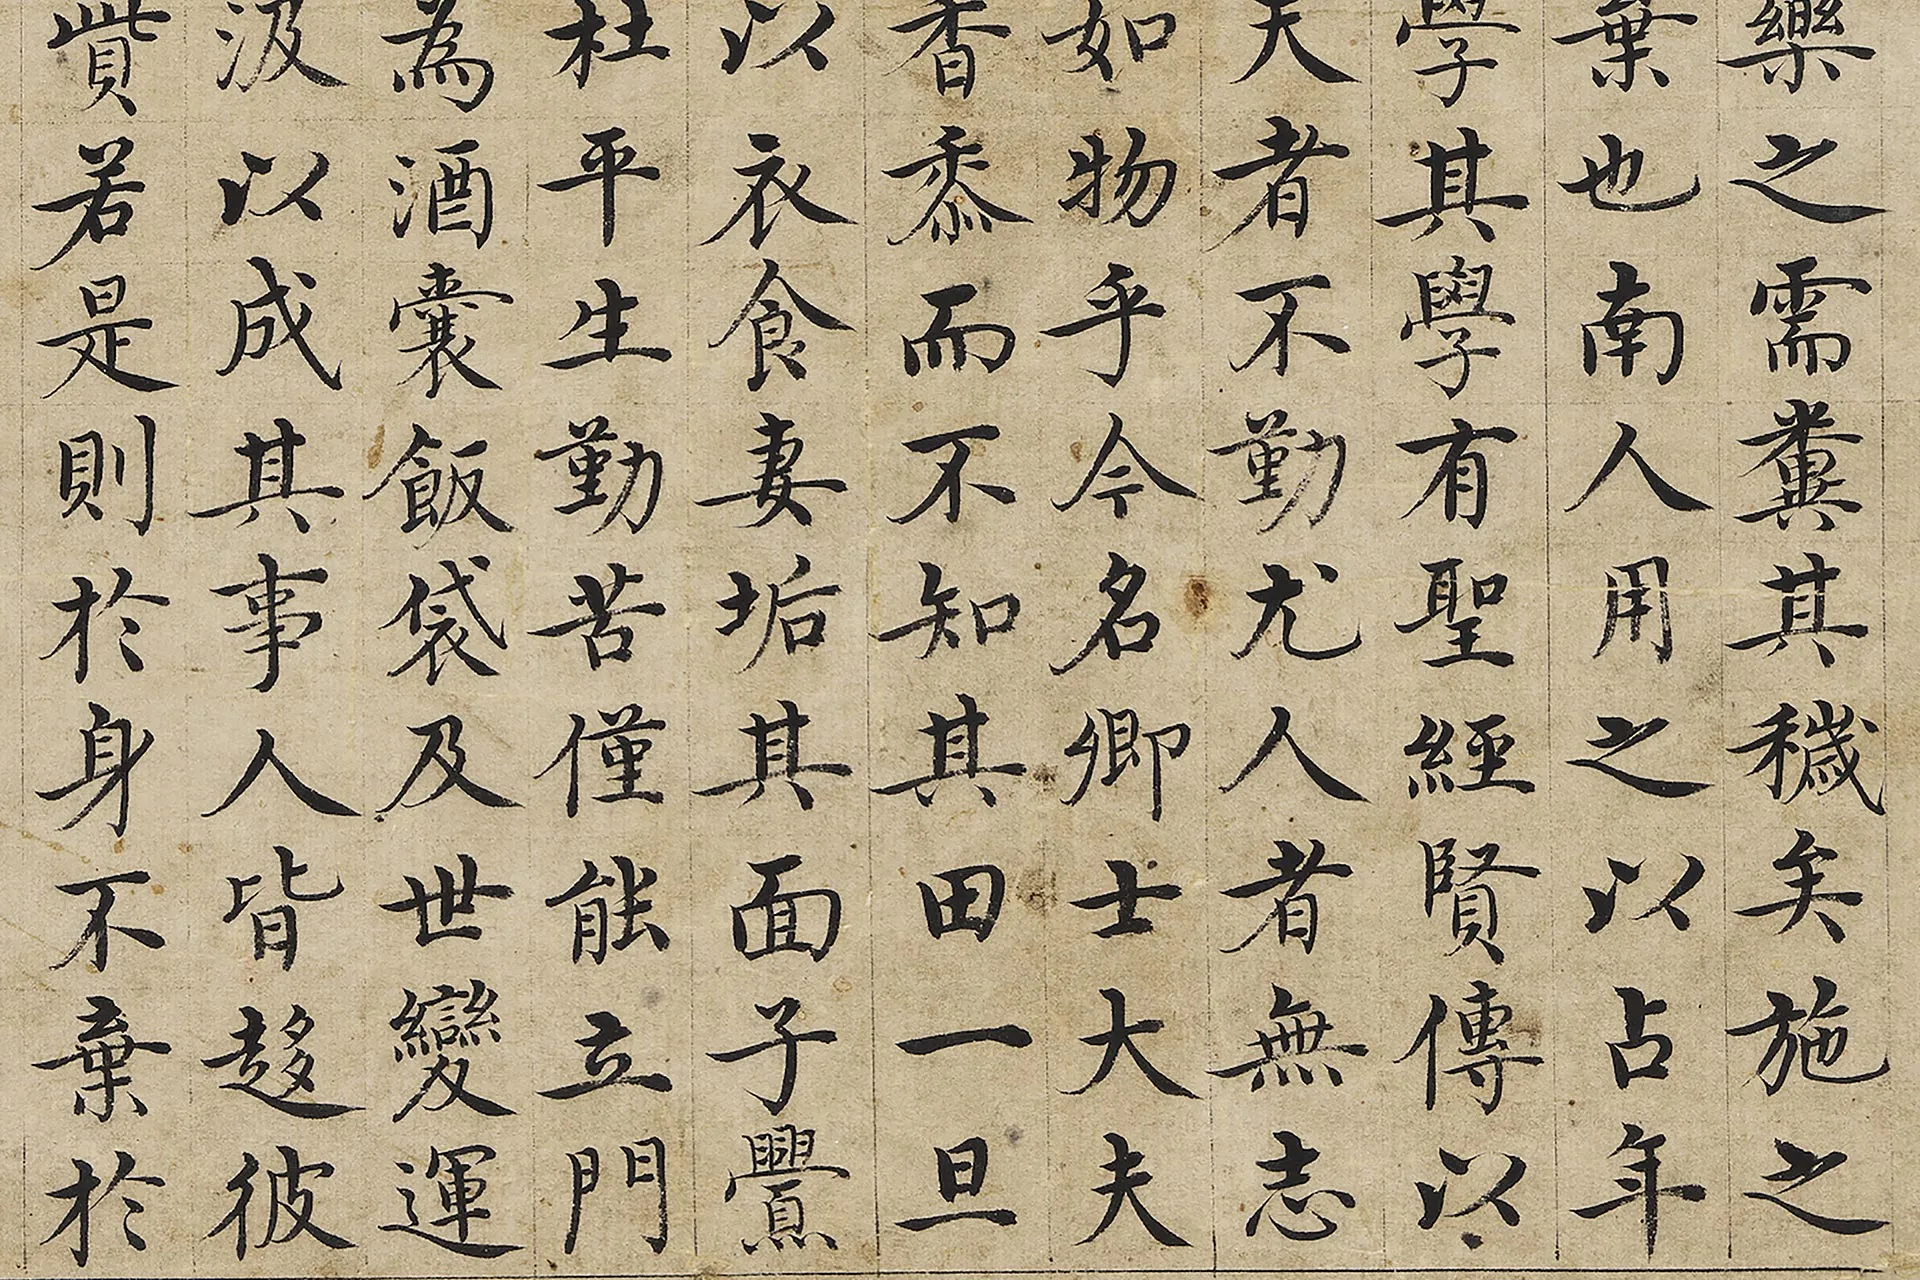 樂之需糞其穢矣施之
葉也南人用之以占年
學其學有聖經賢傳以
天者不勤尤人者無志
如物乎今名卿士大夫
香黍而不知其田一旦
以衣食妻垢其面子
杜平生勤苦僅能立門
為酒囊飯袋及世變運
汲以成其事人皆趍彼
貲若是則於身不棄於